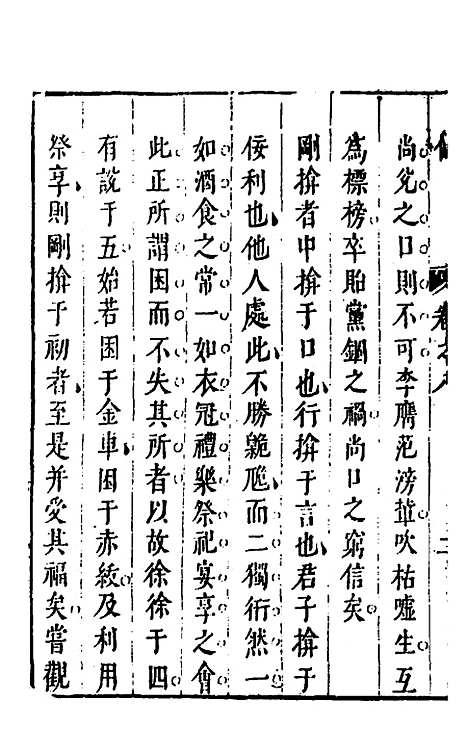 尚兊之口則不可李膺范滂輩吹枯噓生互
爲標榜卒貽黨錮之禍尚口之窮信矣
剛揜者中揜于口也行揜于言也君子揜于
佞利也他人處此不勝臲卼而二獨衎然一
如酒食之常一如衣冠禮樂祭祀宴享之會
此正所謂困而不失其所者以故徐徐于四
有說于五始若困于金車困于赤紱及利用
祭享則剛揜于初者至是并受其福矣嘗觀